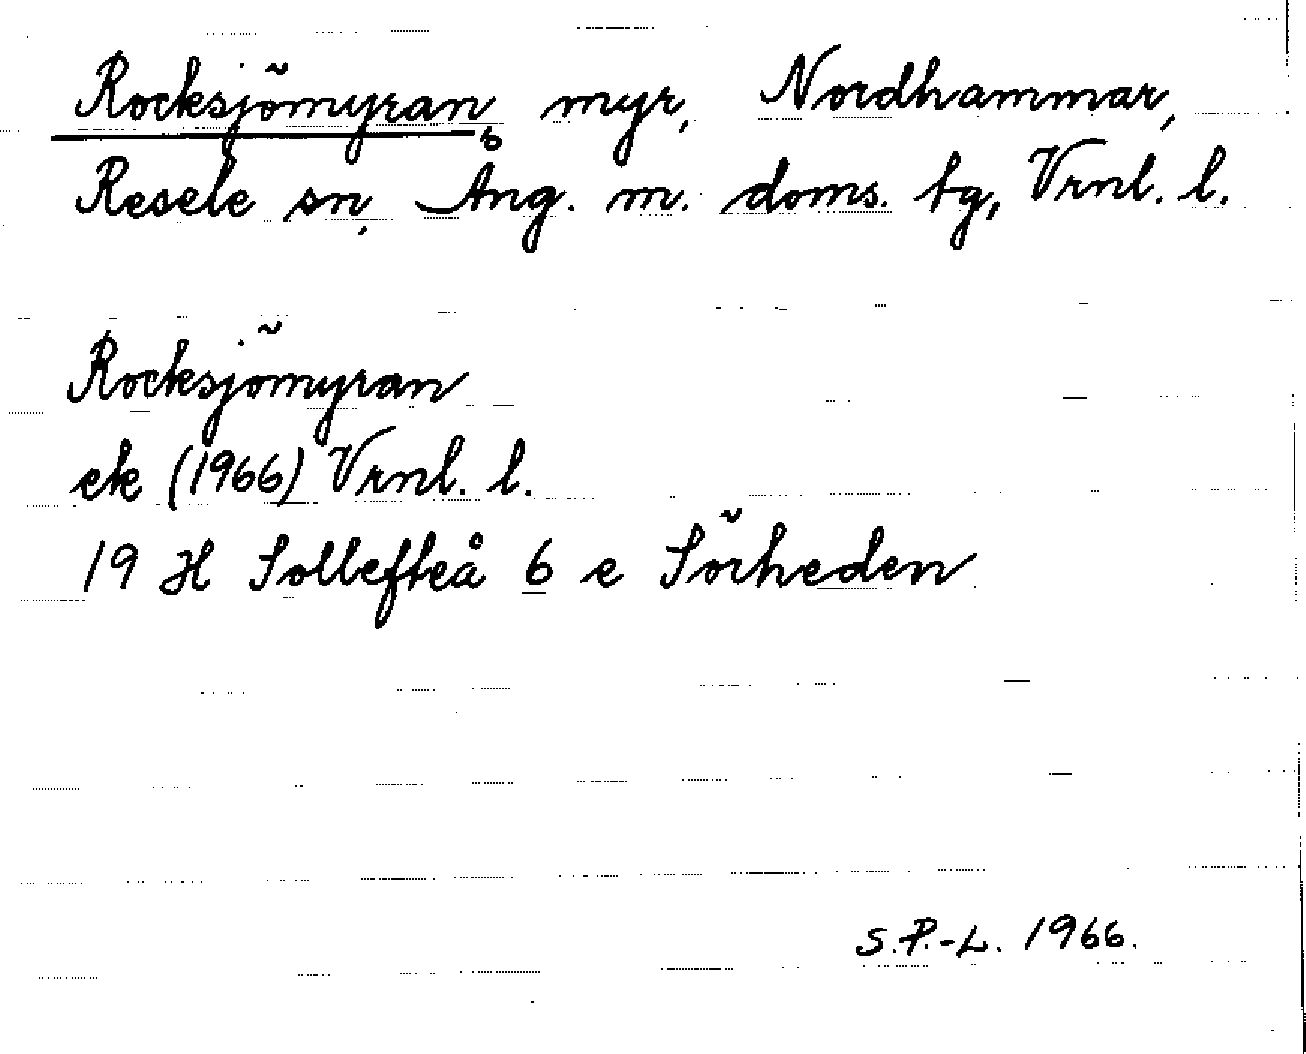 Rocksjömyran, myr, Nordhammar,
Resele sn, Ång. m. doms. tg, Vrnl. l.
Rocksjömyran
ek (1966) Vrnl. l.
19 H Sollefteå 6 e Sörheden
S.P.-L. 1966.